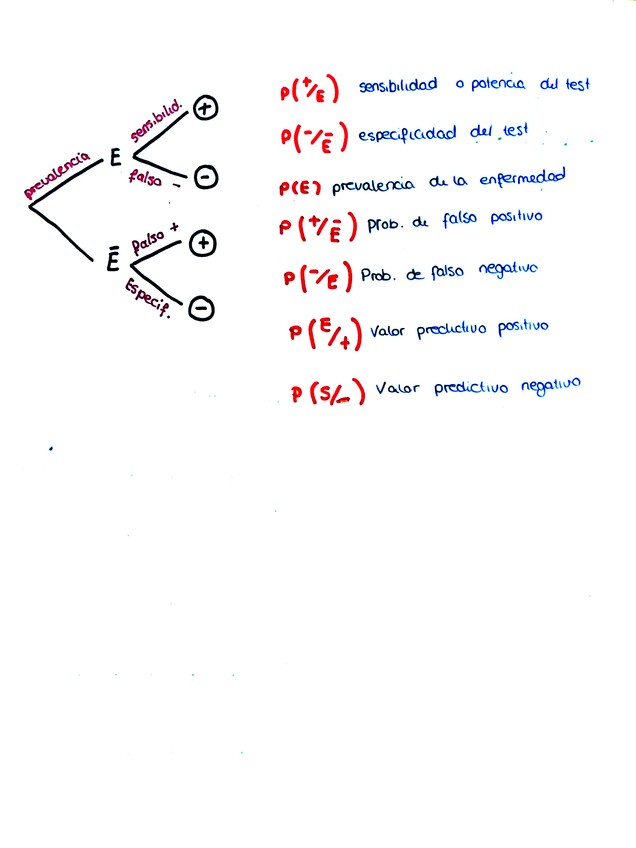 prevalencia
E
sensibilid.
+
falso -
-
Ē
falso +
+
Especif.
-
P(+/E) sensibilidad o potencia del test
P(-/Ē) especificidad del test
P(E) prevalencia de la enfermedad
P(+/Ē) Prob. de falso positivo
P(-/E) Prob. de falso negativo
P(E/+) Valor predictivo positivo
P(S/-) Valor predictivo negativo